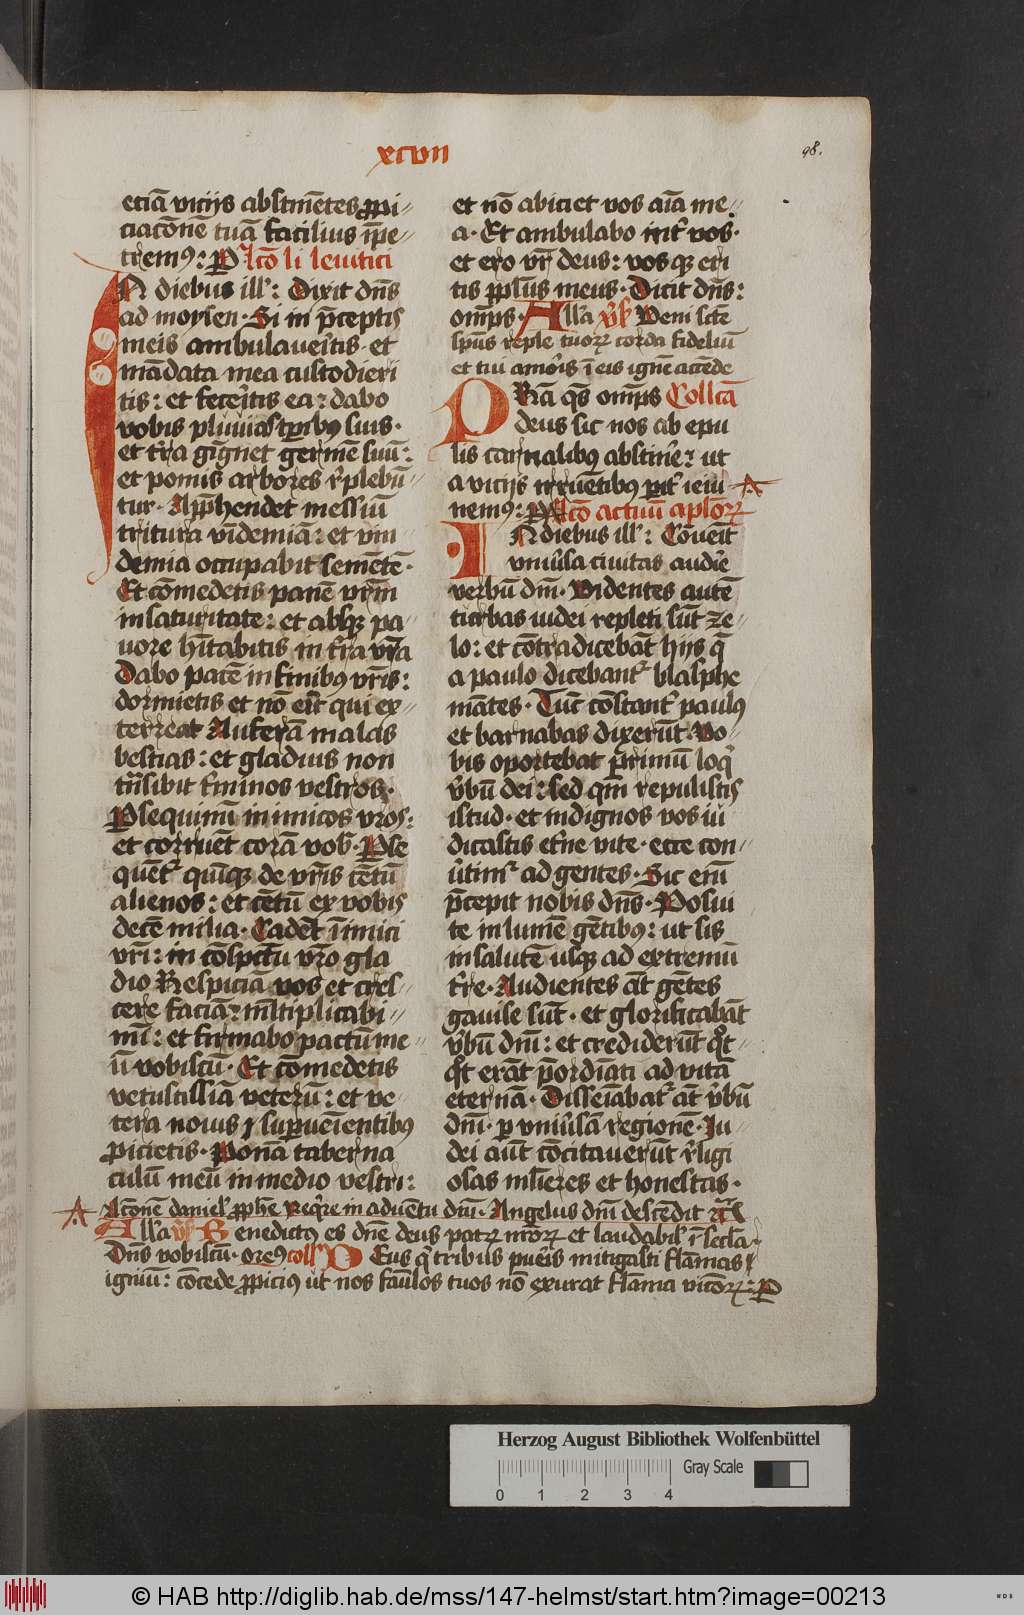 xcvii
98.
etiā viciis abstinētes ꝓpi⸗
ciacōnē tuā facilius īpe⸗
tremꝰ: P lcō li leuitici
IN diebus illꝭ: Dixit dn̄s
ad moysen· Si in p̄ceptis
meis ambulaueritis· et
mādata mea custodieri
tis: et feceritis ea: dabo
vobis pluuias tꝑibꝰ suis·
et tr̄a gignet germē suū:
et pomis arbores r̓plebū⸗
tur· App̄hendet messiū
tritura vīdemiā: et vin
demia occupabit semētē·
Et cōmedetis panē vr̄m
in saturitate: et absqꝫ pa⸗
uore hītabitis in tr̄a vr̄a
Dabo pacē in finibꝰ vr̄is:
dormietis et nō erit qui ex⸗
terreat Auferā malas
bestias: et gladius non
trn̄sibit t̓minos vestros·
Ꝑsequimī inimicos vr̄os:
et corruēt corā vob̓· Ꝑse
quēt᷑ quīqꝫ de vr̄is cētū
alienos: et cētū ex vobis
decē milia· Cadēt īimici
vr̄i: in cōspc̄tu vr̄o gla
dio Respiciā vos et cres⸗
cere faciā: ml̄tiplicabi⸗
mī: et firmabo pactū me⸗
ū vobiscū· Et cōmedetis
vetustissīa veterū: et ve⸗
tera nouis suꝑueīentibꝰ
ꝓicietis· Ponā taberna
culū meū in medio vestri:
et nō abiciet vos aīa me⸗
a· Et ambulabo int̓ vos·
et ero vr̄ deus: vos qꝫ eri
tis ꝓpl̄us meus· Dicit dn̄s:
omp̄s· All̓a v̓s Veni sc̄te
spūs reple tuoꝝ corda fideliū
et tui amoris ī eis ignē accēde
PRā q̄s omp̄s Collcā
deus sic nos ab epu
lis carnalibꝰ abstine̓: ut
a viciis irruētibꝰ pit̓ ieiu⸗ A
nemꝰ: P Lcō actuū apl̄oꝝ
IN diebus illꝭ: Cōueit
vniu̓sa ciuitas audie̓
verbū dn̄i· Videntes autē
turbas iudei repleti sūt ze⸗
lo: et cōtradicebāt hiis q̄
a paulo dicebant᷑ blasphe
mātes· Tūc cōstant̓ paulꝰ
et barnabas dixerūt· Vo⸗
bis oportebat primū loq̓
v̓bū dei: sed qm̄ repulistis
istud· et indignos vos iu
dicastis et̓ne vite· ecce con⸗
u̓timꝰ ad gentes· Sic eni
p̄cepit nobis dn̄s· Posui
te in lumē gētibꝰ: ut sis
in salutē usqꝫ ad extremū
tr̓e· Audientes āt gētes
gauise sūt· et glorificabāt
v̓bū dn̄i: et crediderūt qͦt⸗
qͦt erāt p̄ordiati ad vitā
eternā· Dissemabat᷑ āt v̓bū
dn̄i· ꝑ vniu̓sam regionē· Iu⸗
dei aūt cōcitauerūt r̓ligi
osas ml̓ieres et honestas·
A Lcōnē daniel̓ ꝓphē reqͥre in aduētu dn̄i· Angelus dn̄i descēdit
All̓a v̓s Benedictꝰ es dn̄e deus patꝝ nr̄oꝝ et laudabil̓ ī sec̄la
Dn̄s vobiscū· oremꝰ coll̓ DEus qͥ tribus pueris mitigasti flāmas
igniū: cōcede ꝓpicius ut nos fāulos tuos nō exurat flāma vicioꝝ: P
Herzog August Bibliothek Wolfenbüttel
Gray Scale
0 1 2 3 4
© HAB http://diglib.hab.de/mss/147-helmst/start.htm?image=00213